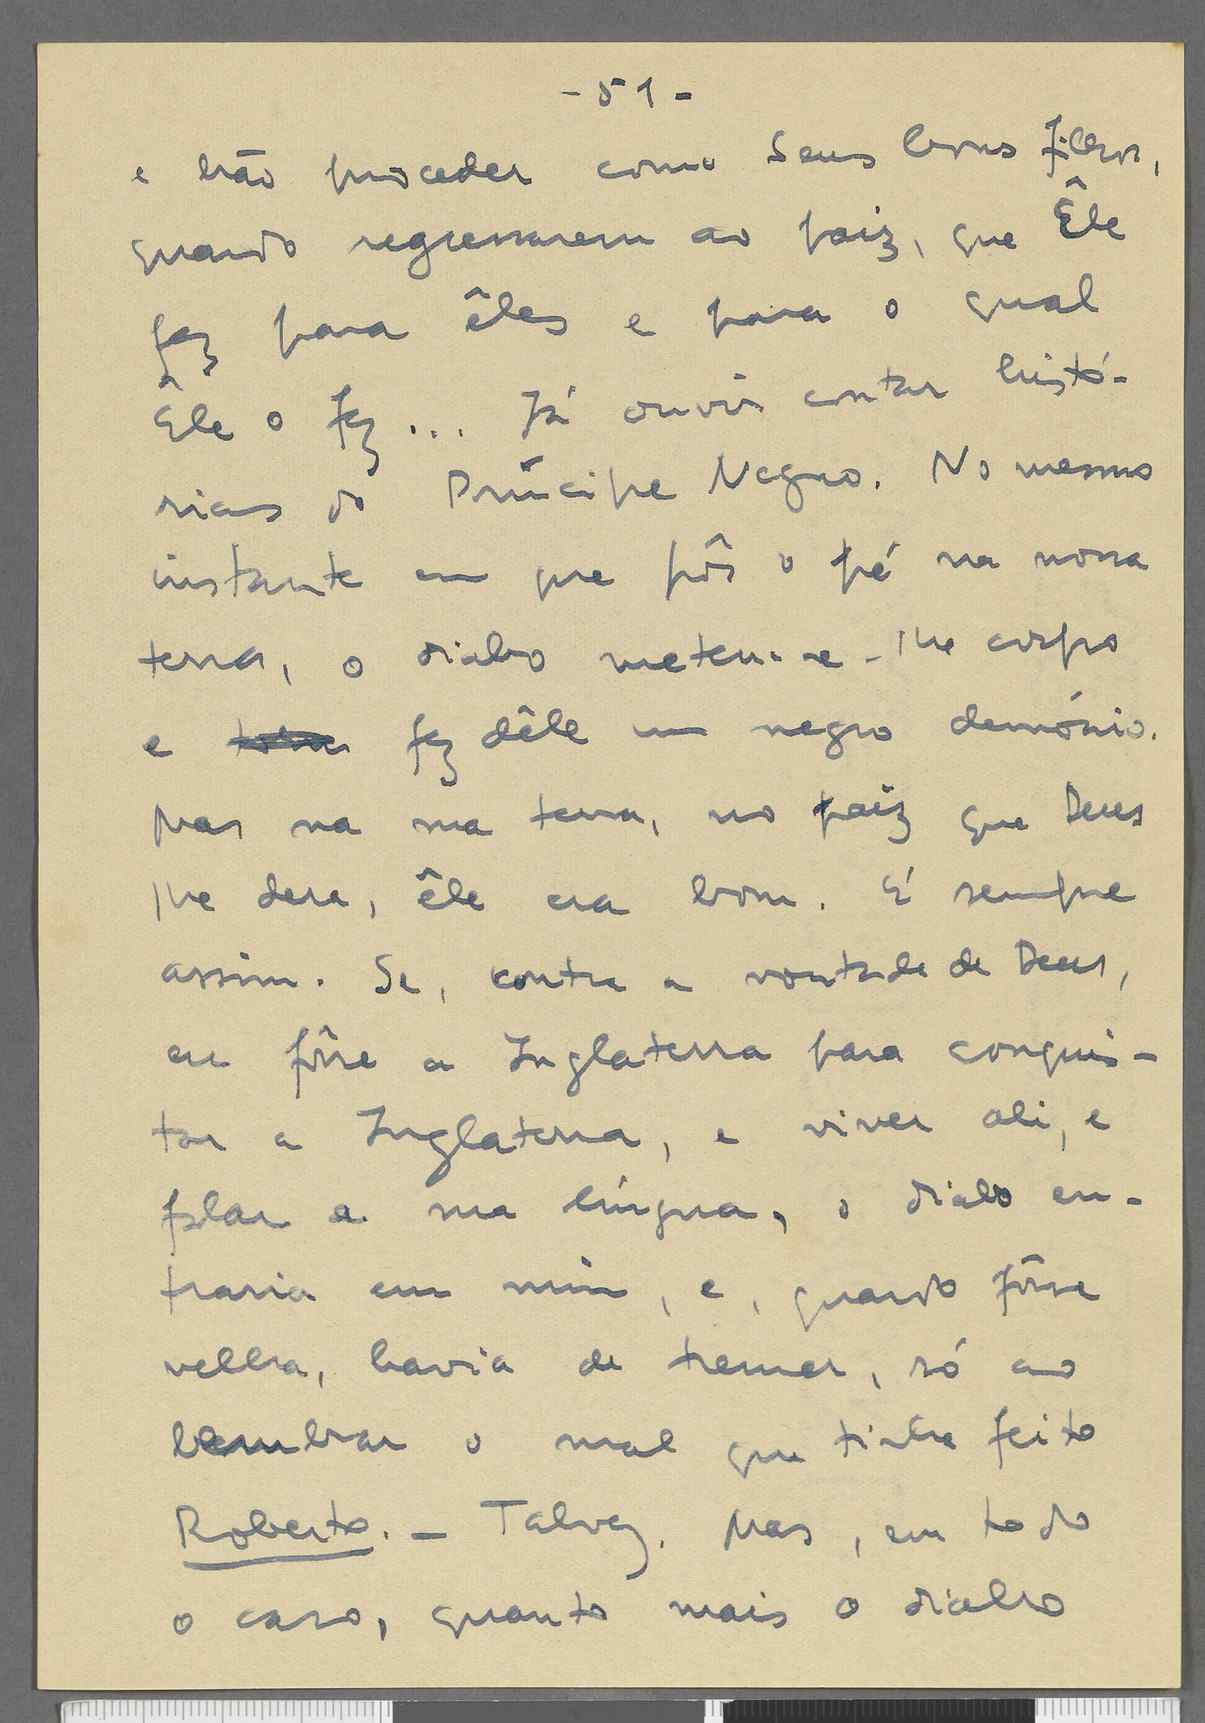 - 51 -
e hão proceder como Seus bons filhos,
quando regressarem ao paiz, que Êle
fez para êles e para o qual
Êle o fez... Já ouvi contar histó-
rias do Príncipe Negro. No mesmo
instante em que pôs o pé na nossa
terra, o diabo meteu-se-lhe corpo
e fez dêle um negro demónio.
Mas na sua terra, no paiz que Deus
lhe dera, êle era bom. É sempre
assim. Se, contra a vontade de Deus,
eu fôsse a Inglaterra para conquis-
tar a Inglaterra, e viver ali, e
falar a sua língua, o diabo en-
traria em mim, e, quando fôsse
velha, havia de tremer, só ao
lembrar o mal que tinha feito
Roberto. - Talvez. Mas, em todo
o caso, quanto mais o diabo